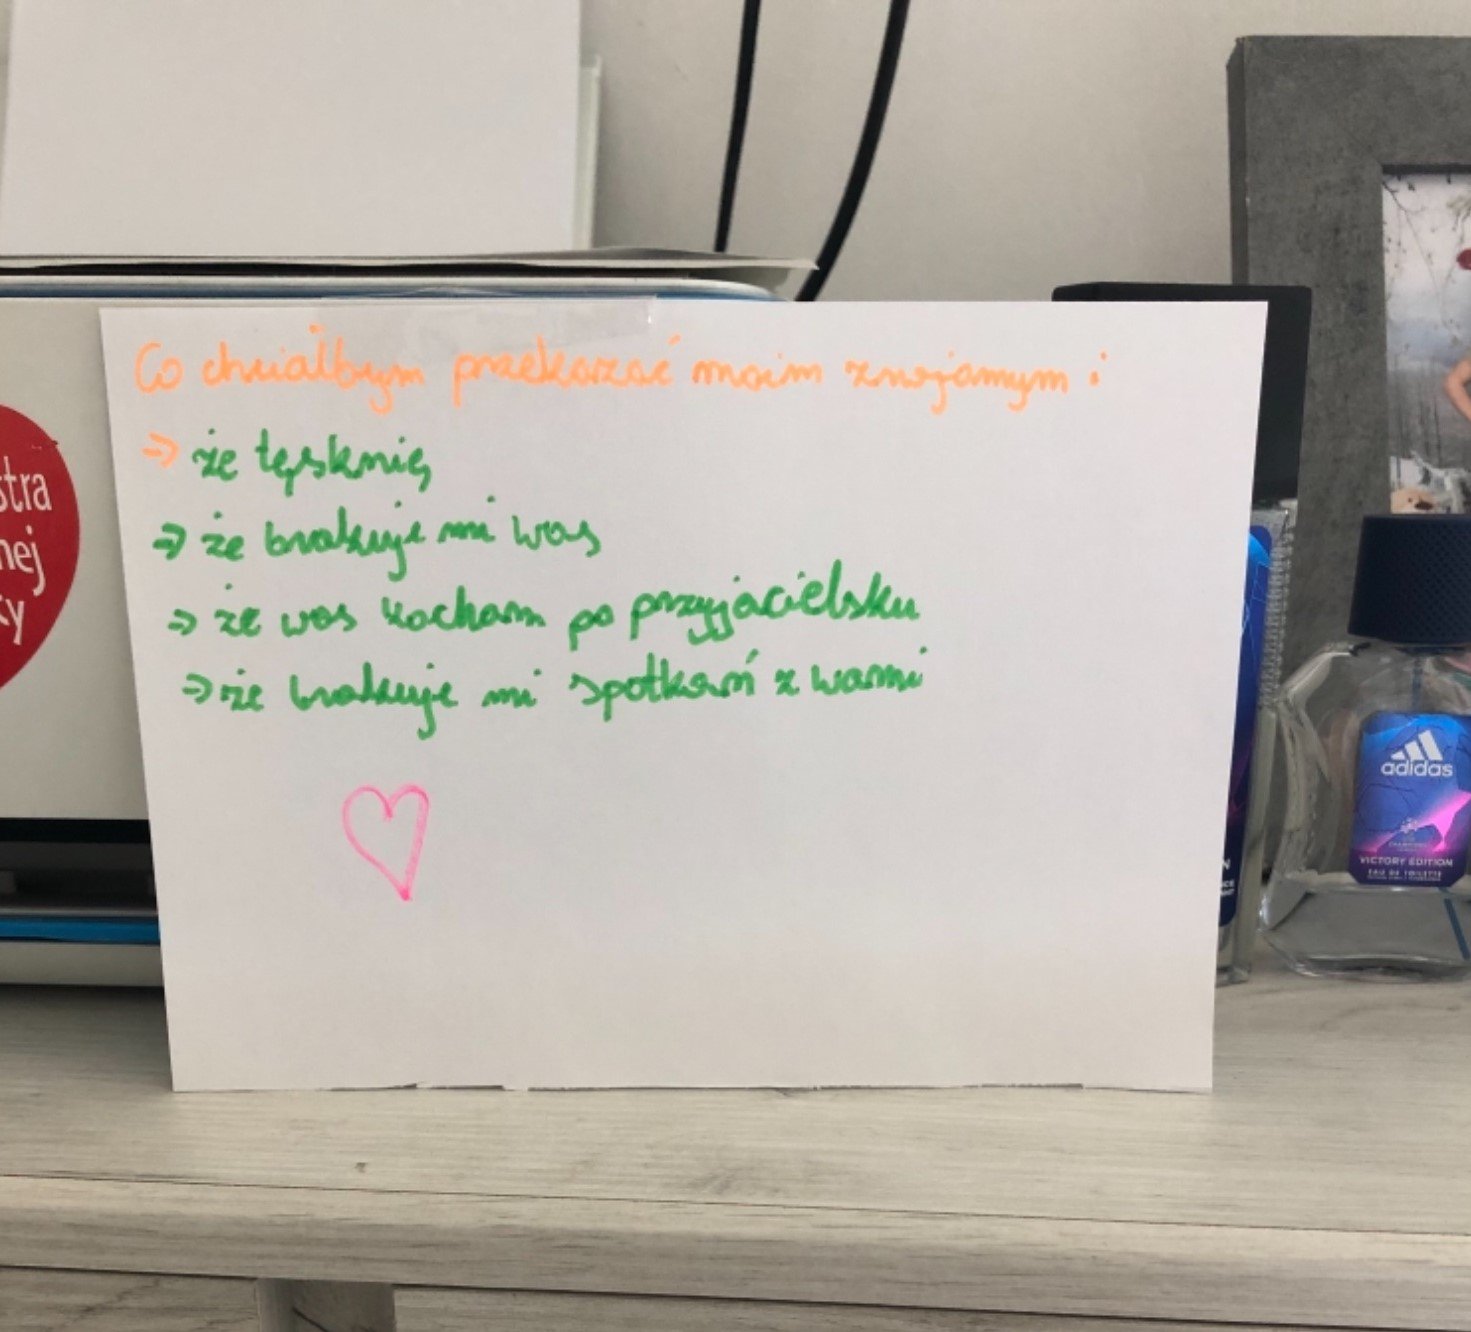 Co chciałbym przekazać moim znajomym :
⇒ że tęsknię
⇒ że brakuje mi was
⇒ że was kocham po przyjacielsku
⇒ że brakuje mi spotkań z wami
stra
nej
cy
adidas
VICTORY EDITION
EAU DE TOILETTE